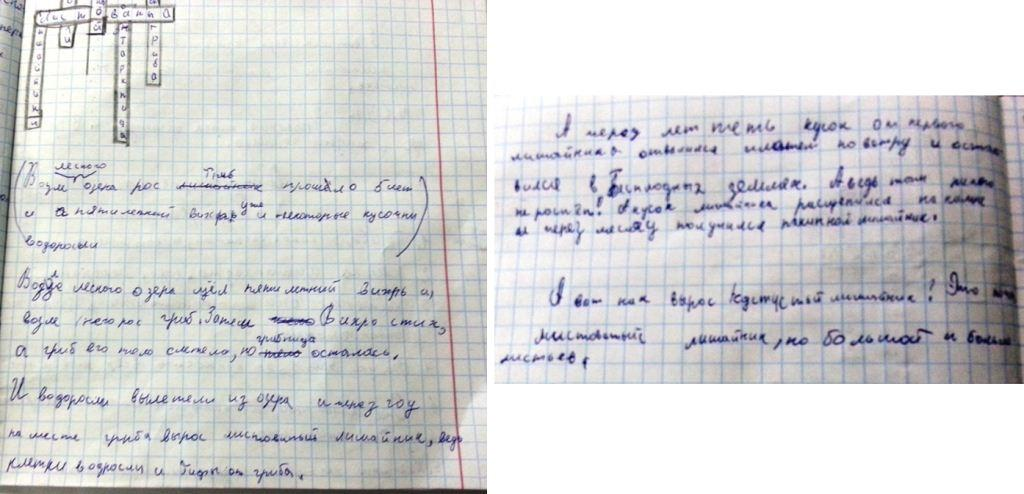 Листованыа
Антарктида
грива
лесного
Возле озера рос лишайник Гриб прошло 5 лет
и а пятилетний вихрь уже и некоторые кусочки
водоросли
Возле лесного озера шёл пятилетний Вихрь и,
возле него рос гриб. Затем Вихрь стих,
а гриб его тело сметело, но грибница осталась.
И водоросли вылетели из озера и через год
на месте гриба вырос листоватый лишайник, ведь
клетки водросли и Гифы от гриба.
А через лет пять кусок от первого
лишайника отвалился по ветру и оста
вился в Бесплодных землях. А ведь там ничего
не растёт! А кусок лишайника расщепился на камне
и через месяц получился накипной лишайник.
А вот как вырос Кустустый лишайник! Это
листоватый лишайник, но большой и больше
листьев.